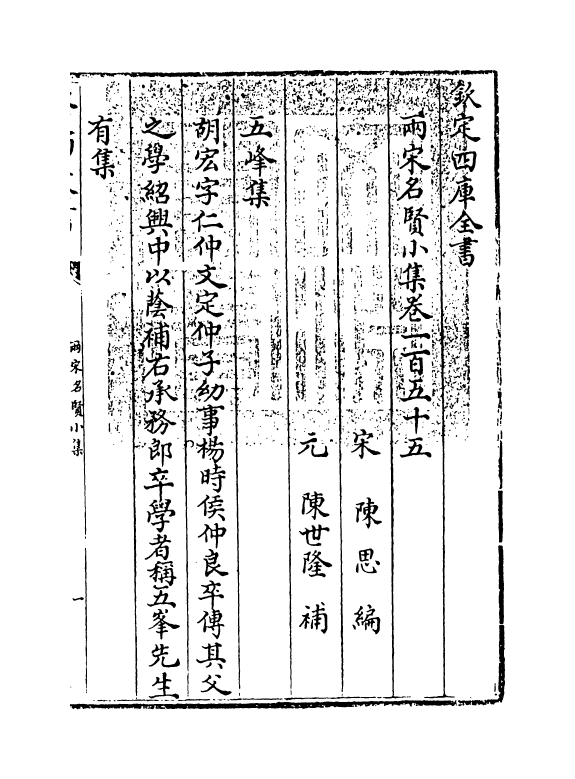 欽定四庫全書
兩宋名賢小集卷一百五十五
宋 陳思 編
元 陳世隆 補
五峰集
胡宏字仁仲文定仲子幼事楊時侯仲良卒傳其父
之學紹興中以蔭補右承務郎卒學者稱五峯先生
有集
兩宋名賢小集
一